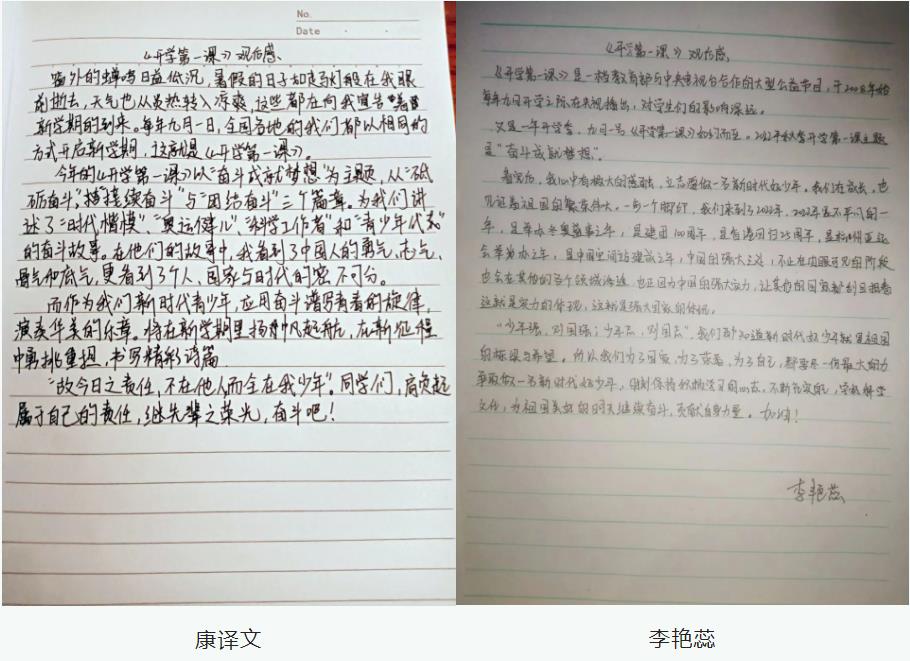 No.
Date
《开学第一课》观后感
窗外的蝉鸣日益低沉,暑假的日子如走马灯般在我眼
前逝去,天气也从炎热转入凉爽,这些都在向我宣告着
新学期的到来。每年九月一日,全国各地的我们都以相同的
方式开启新学期,这就是《开学第一课》。
今年的《开学第一课》以“奋斗成就梦想”为主题,从“砥
砺奋斗”,“接续奋斗”与“团结奋斗”三个篇章。为我们讲
述了“时代楷模”、“奥运健儿”、“科学工作者”和“青少年代表”
的奋斗故事。在他们的故事中,我看到了中国人的勇气,志气、
骨气和底气,更看到了个人、国家与时代的密不可分。
而作为我们新时代青少年,应用奋斗谱写青春的旋律,
演奏华美的乐章。将在新学期里扬帆起航,在新征程
中勇挑重担,书写精彩诗篇
“故今日之责任,不在他人而全在我少年”。同学们,肩负起
属于自己的责任,继先辈之荣光,奋斗吧!
《开学第一课》观后感
《开学第一课》是一档教育部与中央电视台合作的大型公益节目,于2008年始
每年九月开学之际在央视播出,对学生们的影响深远。
又是一年开学季,九月一号《开学第一课》如约而至。2022年秋季开学第一课主题
是“奋斗成就梦想”。
看完后,我心中有极大的感触,立志要做一名新时代好少年。我们在成长,也
见证着祖国的繁荣伟大。一步一个脚印,我们来到了2022年,2022年是不平凡的一
年,是举办冬奥盛事之年,是建团100周年,是香港回归25周年,是杭州亚运
会举办之年,是中国空间站建成之年,中国的强大之迹,不止在肉眼可见的阶段
也会在其他的各个领域
这就是实力的体现,这就是强大国家的体现。
“少年强,则国强;少年
的栋梁与希望。所以我们为了国家,为了家庭,为了自己,都要尽一份最大的力
争取做一名新时代好少年,时刻保持积极学习的心态,不断充实自己
文化,为祖国美好的明天继续奋斗,贡献自身力量。加油!
李艳蕊
康译文
李艳蕊